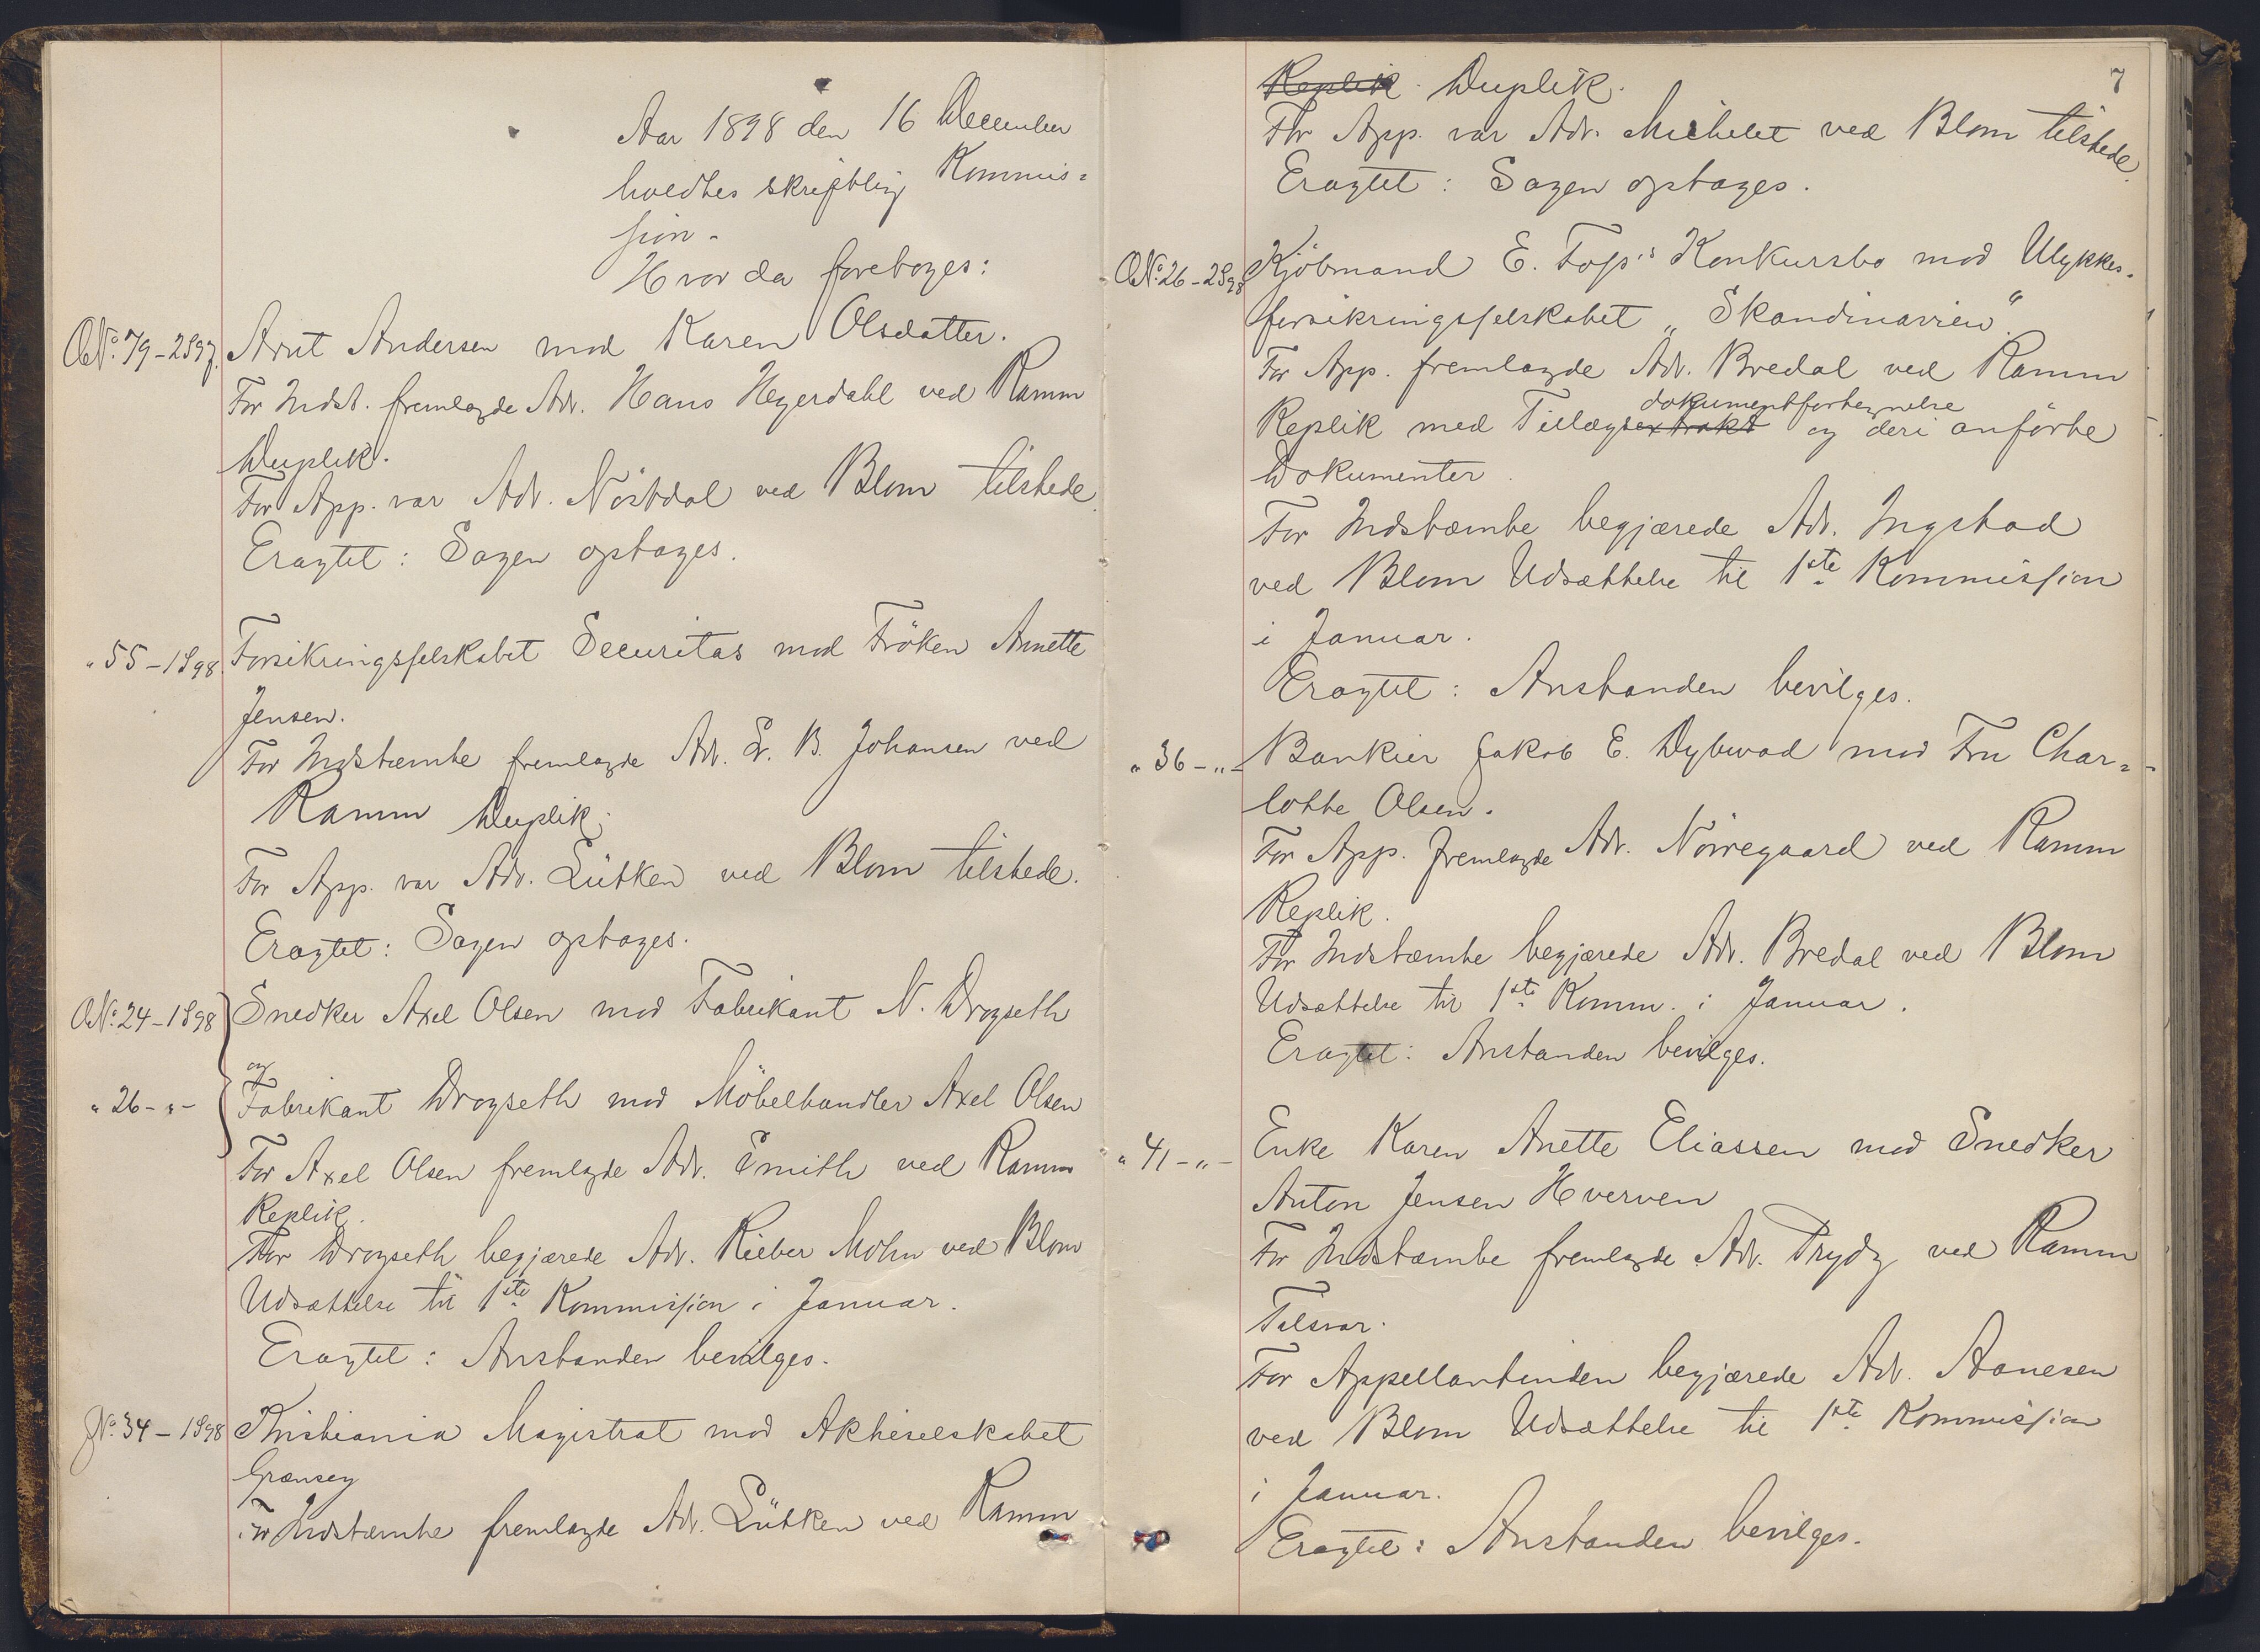 Aar 1898 den 16 December
holdtes skriftlig Kommis=
sion.
Hvor da foretoges:
No. 79-2897. Arnt Andersen mod Karen Olsdatter.
For Indst. fremlagde Adv. Hans Heyerdahl ved Ramm
Duplik.
For App. var Adv. Nöstdal ved Blom tilstede.
Eragtet: Sagen optages.
" 55-1898. Forsikringsselskabet Securitas mod Fröken Annette
Jensen.
For Indstæmte fremlagde Adv. Er. B. Johansen ved
Ramm Duplik.
For App. var Adv. Lütken ved Blom tilstede.
Eragtet: Sagen optages.
No. 24-1898 Snedker Axel Olsen mod Fabrikant N. Drogseth
og
" 26-"- Fabrikant Drogseth mod Möbelhandler Axel Olsen
For Axel Olsen fremlagde Adv. Smith ved Ramm
Replik.
For Drogseth begjærede Adv. Rieber Mohn ved Blom
Udsættelse til 1ste Kommission i Januar.
Eragtet: Anstanden bevilges.
No. 34-1898 Kristiania Magistrat mod Aktieselskabet
Grænsen
For Indstæmte fremlagde Adv. Lütken ved Ramm
7
Replik. Duplik.
For App. var Adv. Michelet ved Blom tilstede.
Eragtet: Sagen optages.
No. 26-2898 Kjöbmand E. Fop's Konkursbo mod Ulykkes-
forsikringsselskabet „Skandinavien“.
For App. fremlagde Adv. Bredal ved Ramm
dokumentfortegnelse
Replik med Tillægsextrakt og deri anförte
Dokumenter.
For Indstæmte begjærede Adv. Ingstad
ved Blom Udsættelse til 1ste Kommission
i Januar.
Eragtet: Anstanden bevilges.
" 36-"- Bankier Jakob E. Dybwad mod Fru Char=
lotte Olsen.
For App. fremlagde Adv. Nörregaard ved Ramm
Replik.
For Indstæmte begjærede Adv. Bredal ved Blom
Udsættelse til 1ste Komm. i Januar.
Eragtet: Anstanden bevilges.
" 41-"- Enke Karen Anette Eliassen mod Snedker
Anton Jensen Hverven
For Indstæmte fremlagde Adv. Prydz ved Ramm
Tilsvar.
For Appellantinden begjærede Adv. Aanesen
ved Blom Udsættelse til 1ste Kommission
i Januar.
Eragtet: Anstanden bevilges.